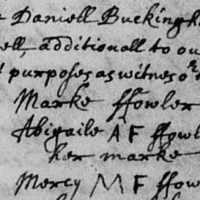 Daniell Buckingh
ell, additionall to ou
purposes as witnes o^r
Marke ffowler
Abigaile A F ffowl
her marke
Mercy M F ffow